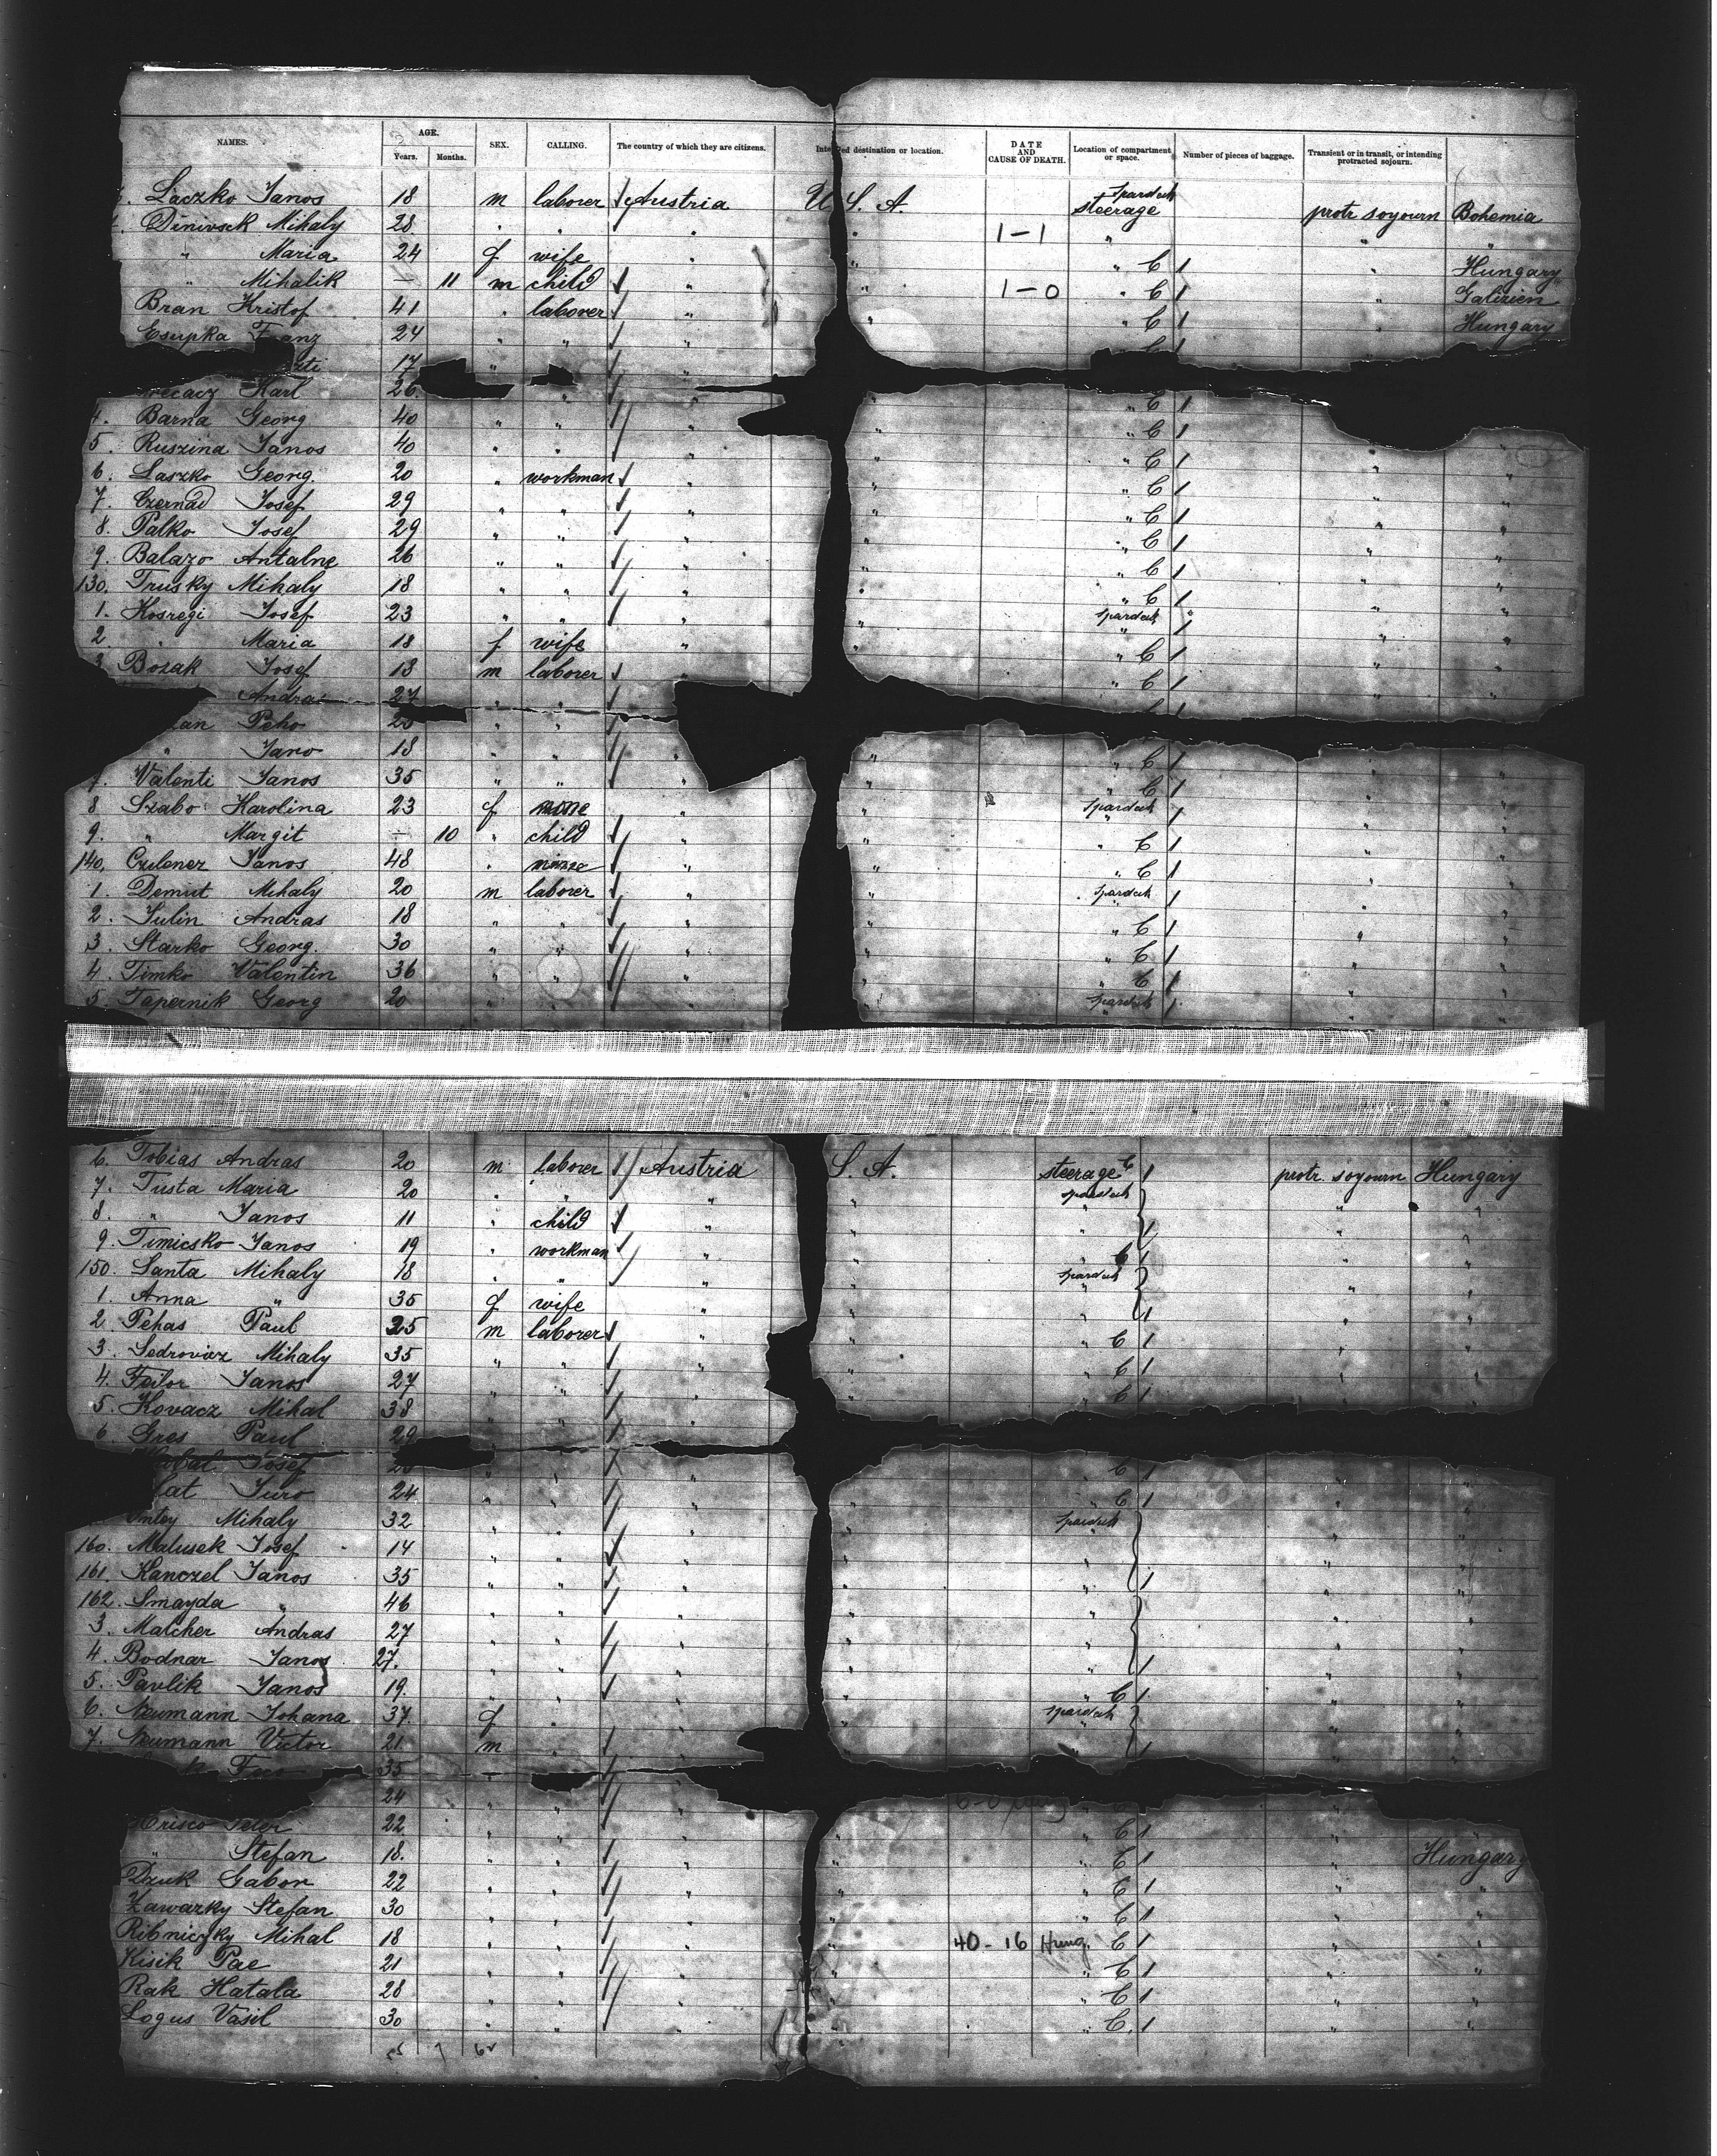 NAMES. AGE. Years. Months. SEX. CALLING. The country of which they are citizens. Intended destination or location. DATE AND CAUSE OF DEATH. Location of compartment or space. Number of pieces of baggage. Transient or in transit, or intending protracted sojourn.
Laczko Janos 18 m laborer Austria U. S. A. Spardeck steerage protr soyourn Bohemia
Dinivsck Mihaly 28 " " " " 1-1 " " "
" Maria 24 f wife " " " C 1 " Hungary
" Mihalik — 11 m child " 1-0 " C 1 " Galizien
Bran Kristof 41 " laborer " " " C 1 Hungary
Csupka Franz 24 " " "
17 "
Karl 26 " " C 1
4. Barna Georg 40 " " " " " C 1
5. Ruszina Janos 40 " " " " " C 1 " "
6. Laszko Georg. 20 " workman " " " C 1 " "
7. Czernad Josef 29 " " " " " C 1 " "
8. Palko Josef 29 " " " " C 1 " "
9. Balazo Antalne 26 " " " " " C 1 " "
130. Trusky Mihaly 18 " " " " " C 1 " "
1. Kosregi Josef 23 " " " " Spardeck " "
2. " Maria 18 f wife " " " C 1 " "
3 Bozak Josef 18 m laborer " " C 1 " "
Andras 27 " "
Peho 25 " " "
" Jano 18 " " " " " C 1 " "
7. Valenti Janos 35 " " " " " C 1 " "
8 Szabo Karolina 23 f none " " Spardeck 1 " "
9. " Margit — 10 " child " " " C 1 " "
140. Czlener Janos 48 " " " " C 1 " "
1. Demut Mihaly 20 m laborer " " Spardeck 1 " "
2. Julin Andras 18 " " " " " C 1 " "
3. Starko Georg. 30 " " " " " C 1 " "
4. Timko Valentin 36 " " " " " C 1 " "
5. Tapernik Georg 20 " " " " Spardeck 1 " "
6. Tobias Andras 20 m laborer Austria S. A. steerage C 1 protr. soyourn Hungary
7. Tusta Maria 20 " " " " Spardeck " "
8. " Janos 11 " child " " " 1 " "
9. Timicsko Janos 19 " workman " " C 1 " "
150. Santa Mihaly 18 " " " " Spardeck " "
1. Anna " 35 f wife " " " 1 " "
2. Pehas Paul 25 m laborer " " " C 1 " "
3. Sedroviez Mihaly 35 " " " " " C 1 " "
4. Feilor Janos 27 " " " " " C 1 " "
5. Kovacz Mihal 38 " " "
6 Gres Paul 29 " " "
Josef " " " C 1 "
Juro 24 " " " " " C 1 " "
Mihaly 32 " " " " Spardeck " "
160. Malusek Josef 14 " " " " " " "
161. Kanczel Janos 35 " " " " " 1 " "
162. Smayda " 46 " " " " " " "
3. Malcher Andras 27 " " " " " "
4. Bodnar Janos 27. " " " " " 1 " "
5. Pavlik Janos 19. " " " " C 1 " "
6. Neumann Johana 37. f " " " Spardeck " "
7. Neumann Victor 21 m " " " " 1 " "
35 " "
24 " " "
Hrisco Peter 22 " " " " " C 1 "
" Stefan 18. " " " " " C 1 " Hungary
Dzuk Gabor 22 " " " " " C 1 " "
Zawarky Stefan 30 " " " " " C 1 " "
Ribniczky Mihal 18 " " " " 40-16 Hung " C 1 " "
Kisik Pae 21 " " " " " C 1 " "
Rak Hatala 28 " " " " " C 1 " "
Logus Vasil 30 " " " " " C. 1 " "